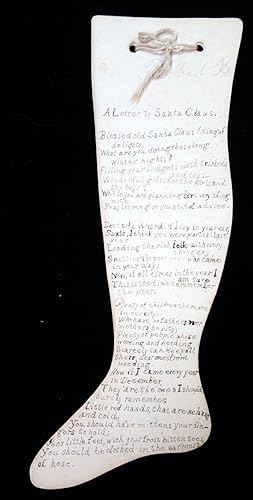 A Letter to Santa Claus.
Blessed old Santa Claus! king of
delights,
What are you doing these long
winter nights?
Filling your budgets with trinkets
and toys—
Wonderful gifts for the girls and
the boys?
While you are planning for everything
nice,
Pray let me give you a bit of advice.
Don't take it hard if I say to your ear,
Santa, I think you were partial last
year
Loading the rich folk with every
thing gay
Snubbing the poor ones who came
in your way;
Now, of all times in the year I
am sure
This is the time to remember
the poor.
Plenty of children there are
in our city,
Who have no fathers nor
mothers to pity;
Plenty of people whose
working and heeding
Scarcely can keep all
their dear ones from
needing.
Now if I came every year
in December
They are the ones I should
surely remember.
Little red hands, that are aching
and cold,
You should have mittens your fin-
gers to hold;
Poor little feet, with your frost bitten toes,
You should be clothed in the warmest
of hose.